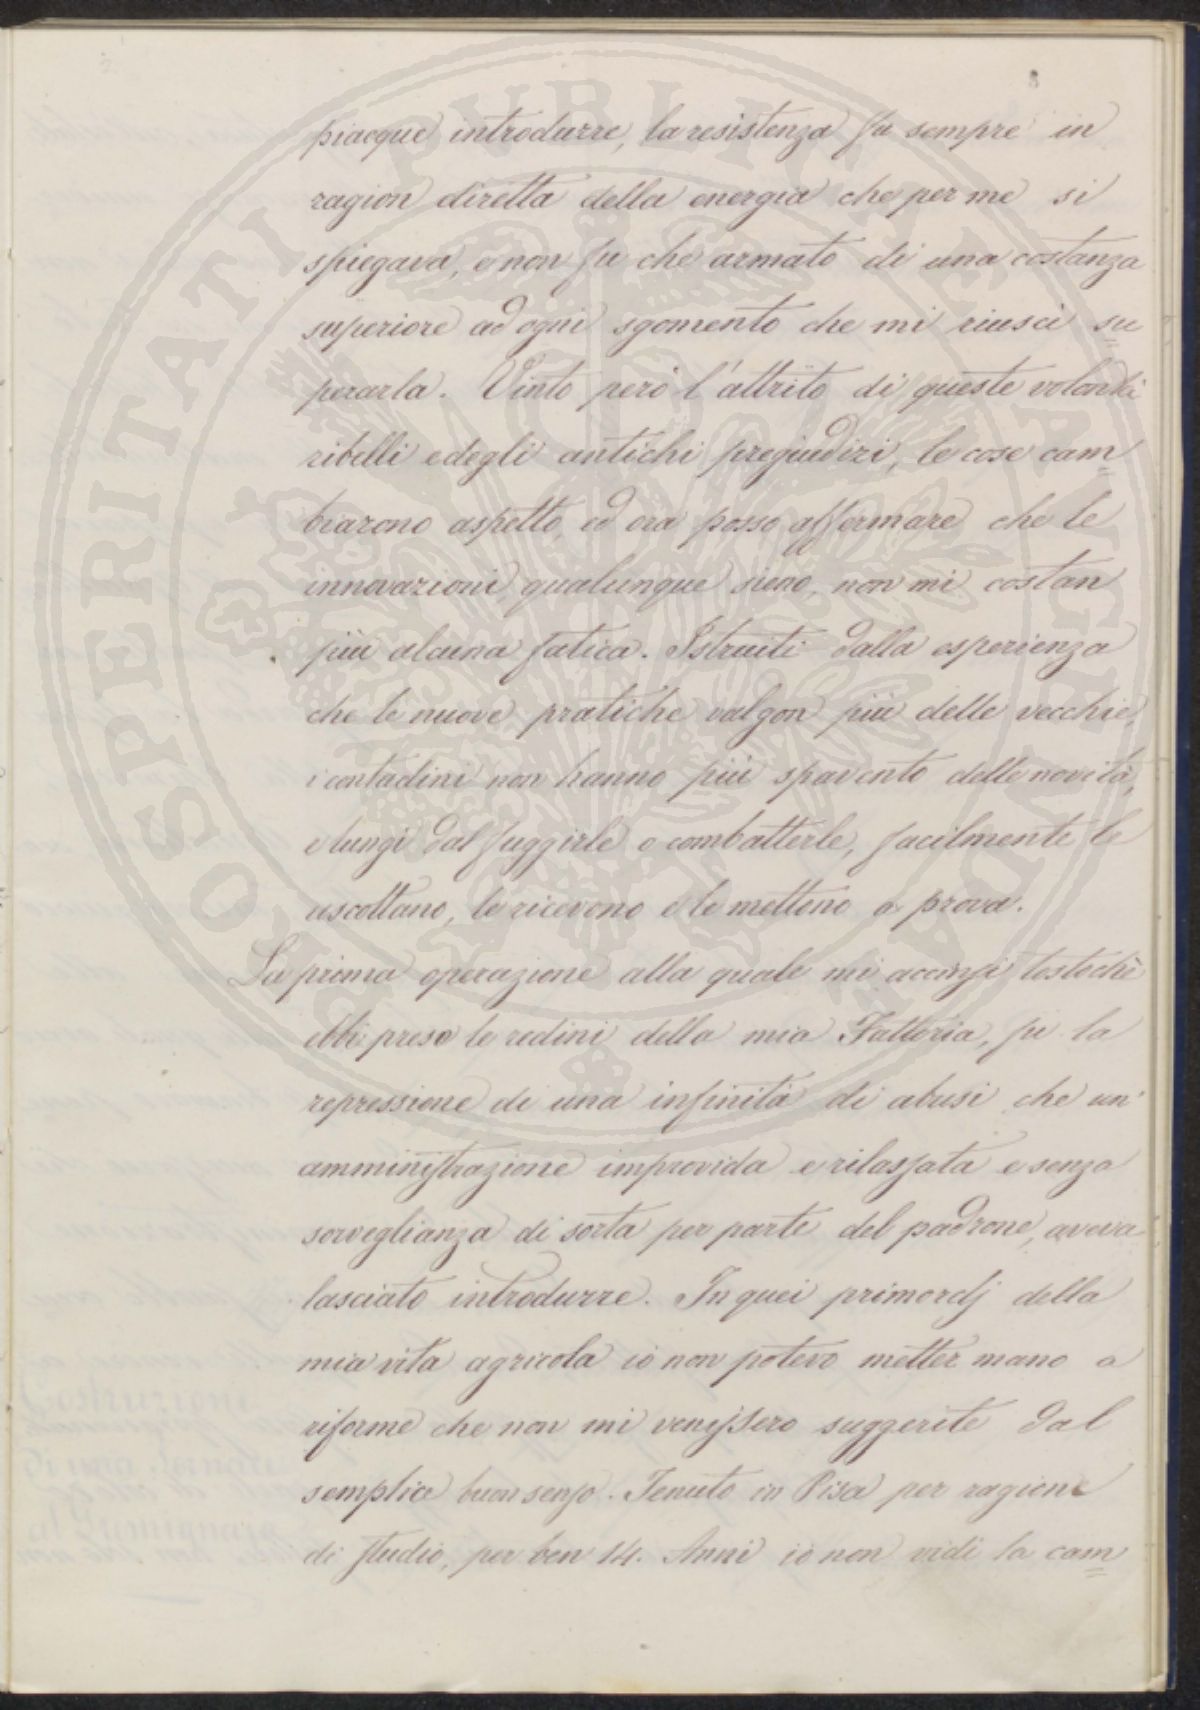 3
piacque introdurre, la resistenza fu sempre in
ragion diretta della energia che per me si
spiegava, e non fu che armato di una costanza
superiore ad ogni sgomento che mi riuscì su
perarla. Vinto però l'attrito di queste volontà
ribelli e degli antichi pregiudizi, le cose cam
biarono aspetto, ed ora posso affermare che le
innovazioni qualunque sieno, non mi costan
più alcuna fatica. Istruiti dalla esperienza
che le nuove pratiche valgon più delle vecchie,
i contadini non hanno più spavento delle novità,
e lungi dal fuggirle o combatterle, facilmente le
ascoltano, le ricevono e le mettono a prova.
La prima operazione alla quale mi accinsi tostochè
ebbi preso le redini della mia Fattoria, fu la
repressione di una infinità di abusi che un'
amministrazione improvida e rilassata e senza
sorveglianza di sorta per parte del padrone, aveva
lasciato introdurre. In quei primordj della
mia vita agricola io non potevo metter mano a
riforme che non mi venissero suggerite dal
semplice buon senso. Tenuto in Pisa per ragione
di studio, per ben 14. Anni io non vidi la cam
PROSPERITATI PVBLICAE AVGENDAE